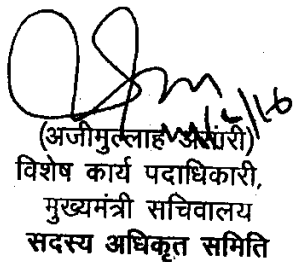 (अजीमुल्लाह अंसारी)
विशेष कार्य पदाधिकारी,
मुख्यमंत्री सचिवालय
सदस्य अधिकृत समिति